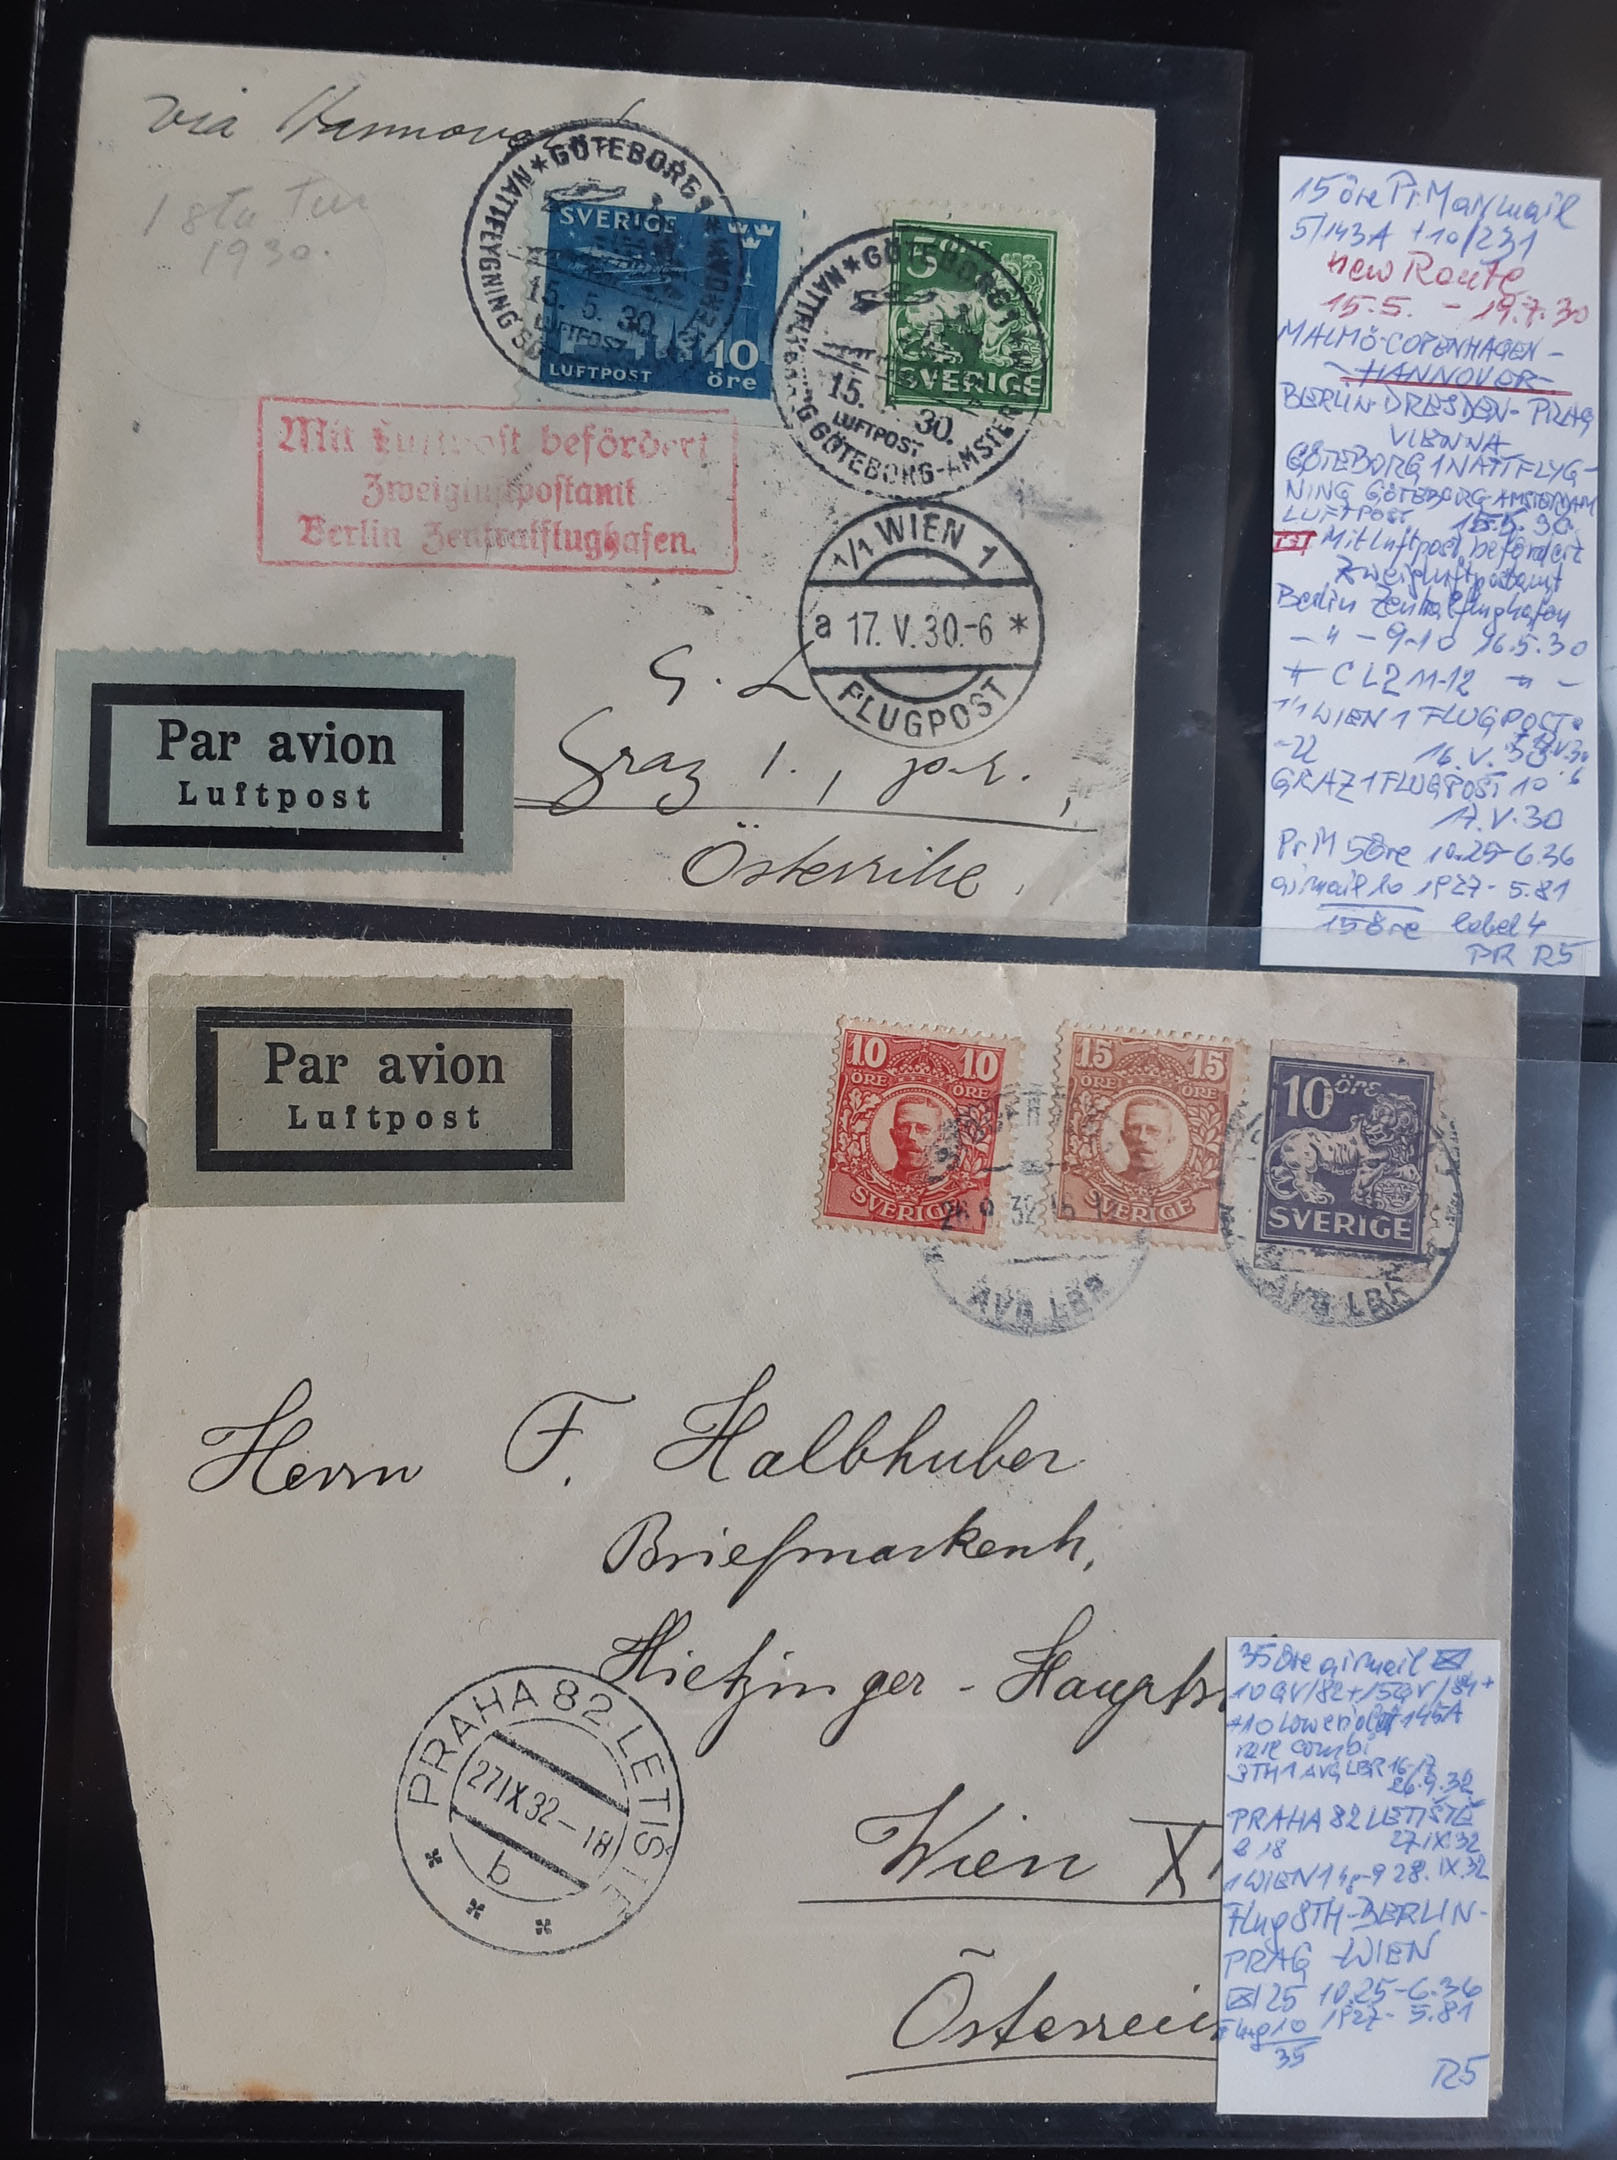 via Hannover
1sta Tur
1930.
* GÖTEBORG 1 *
NATTFLYGNING GÖTEBORG-AMSTERDAM
15. 5. 30.
LUFTPOST
SVERIGE
LUFTPOST
10
öre
* GÖTEBORG 1 *
NATTFLYGNING GÖTEBORG-AMSTERDAM
15. 5. 30.
LUFTPOST
5 öre
SVERIGE
Mit Luftpost befördert
Zweigluftpostamt
Berlin Zentralflughafen.
1/1 WIEN 1
a 17. V. 30.-6 *
FLUGPOST
G. L
Graz 1., p.r.
Österrike.
Par avion
Luftpost
15 öre Pr.M airmail
5/143A + 10/231
new Route
15.5. - 19.7.30
MALMÖ-COPENHAGEN-
-HANNOVER-
BERLIN-DRESDEN-PRAG
VIENNA
GÖTEBORG 1 NATTFLYG-
NING GÖTEBORG-AMSTERDAM
LUFTPOST 15.5.30.
Mit Luftpost befördert
Zweigluftpostamt
Berlin Zentralflughafen
- " - 9-10 16.5.30
+ C L2 11-12 - " -
1/1 WIEN 1 FLUGPOST
16.V.30
GRAZ 1 FLUGPOST 10
17.V.30
Pr.M 5öre 10.25-6.36
airmail 10 1927-5.81
15öre label 4
PR R5
Par avion
Luftpost
10 10
ÖRE ÖRE
SVERIGE
15 15
ÖRE ÖRE
SVERIGE
10 öre
SVERIGE
26 9 32 16
AVG LBR
AVG LBR
Herrn F. Halbhuber
Briefmarkenh,
Hietzinger - Haupts
Wien X
Österreic
PRAHA 82 LETIŠTĚ
27 IX 32-18
b
35 öre airmail
10 GV/82 + 15 GV/84 +
+10 Löwe violet 145A
rare combi
STH 1 AVG LBR 16-17
26.9.32
PRAHA 82 LETIŠTĚ
b 18 27.IX.32
1 WIEN 1 8-9 28.IX.32
Flug STH-BERLIN-
PRAG-WIEN
25 10.25-6.36
Flug 10 1927-5.81
35
R5